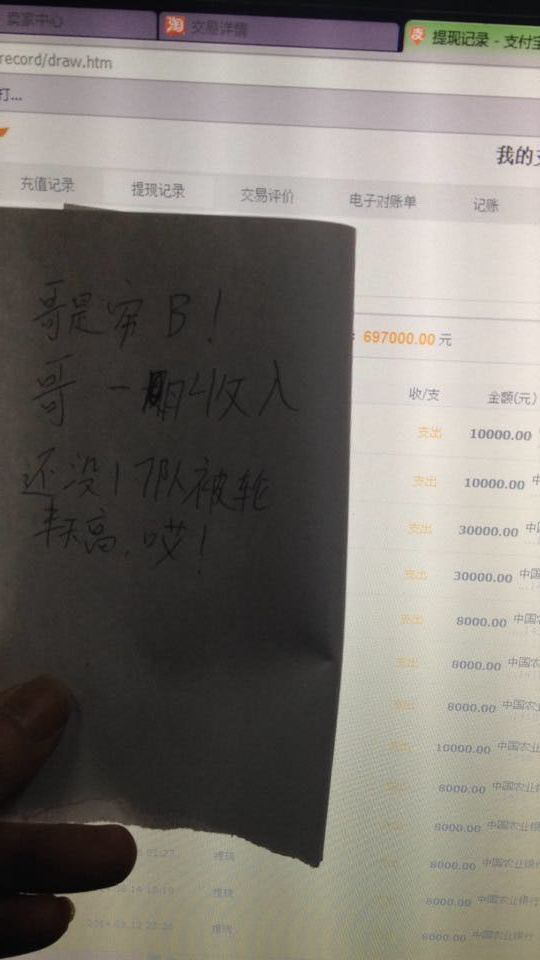 卖家中心 交易详情 提现记录 - 支付宝
record/draw.htm
打...
我的支
充值记录 提现记录 交易评价 电子对账单 记账
697000.00 元
收/支 金额(元)
支出 10000.00 中
支出 10000.00 中
支出 30000.00 中国
支出 30000.00 中国
支出 8000.00 中国农
支出 8000.00 中国农
支出 8000.00 中国农业
支出 10000.00 中国农业
支出 8000.00 中国农业银
8000.00 中国农业银
提现 8000.00 中国农业银行
提现 8000.00 中国农业银行
提现 8000.00 中国农业银行
哥是穷B!
哥一期收入
还没
被轮
高,哎!